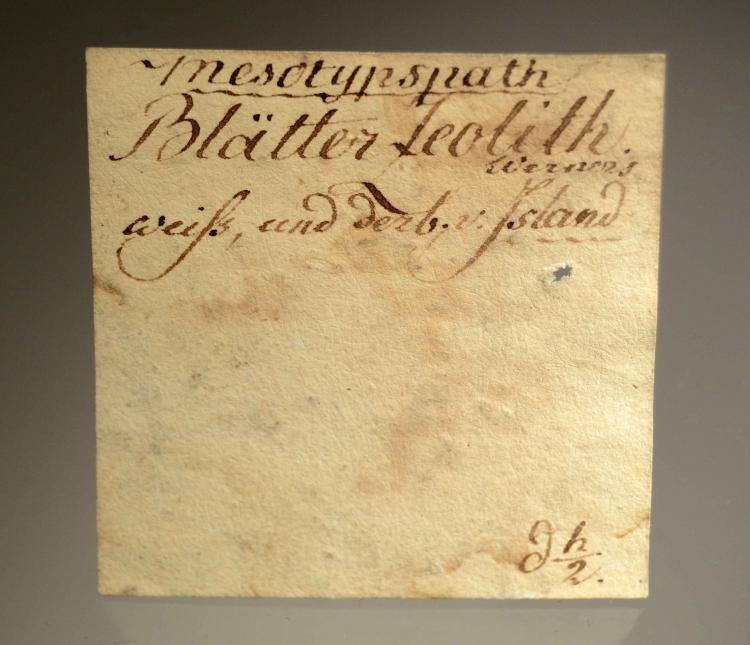 mesotypspath
Blätter Zeolith
Werners
weiß, und derb. v. Island
h
2.